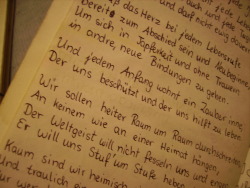 das Herz bei jedem Lebensrufe
Bereit zum Abschied sein und Neubeginne
Um sich in Tapferkeit und ohne Trauern
In andre, neue Bindungen zu geben.
Und jedem Anfang wohnt ein Zauber inne
Der uns beschützt und der uns hilft zu leben
Wir sollen heiter Raum um Raum durchschreiten
An keinem wie an einer Heimat hängen,
Der Weltgeist will nicht fesseln uns und engen
Er will uns Stuf um Stufe heben
Kaum sind wir heimisch
Und traulich ein